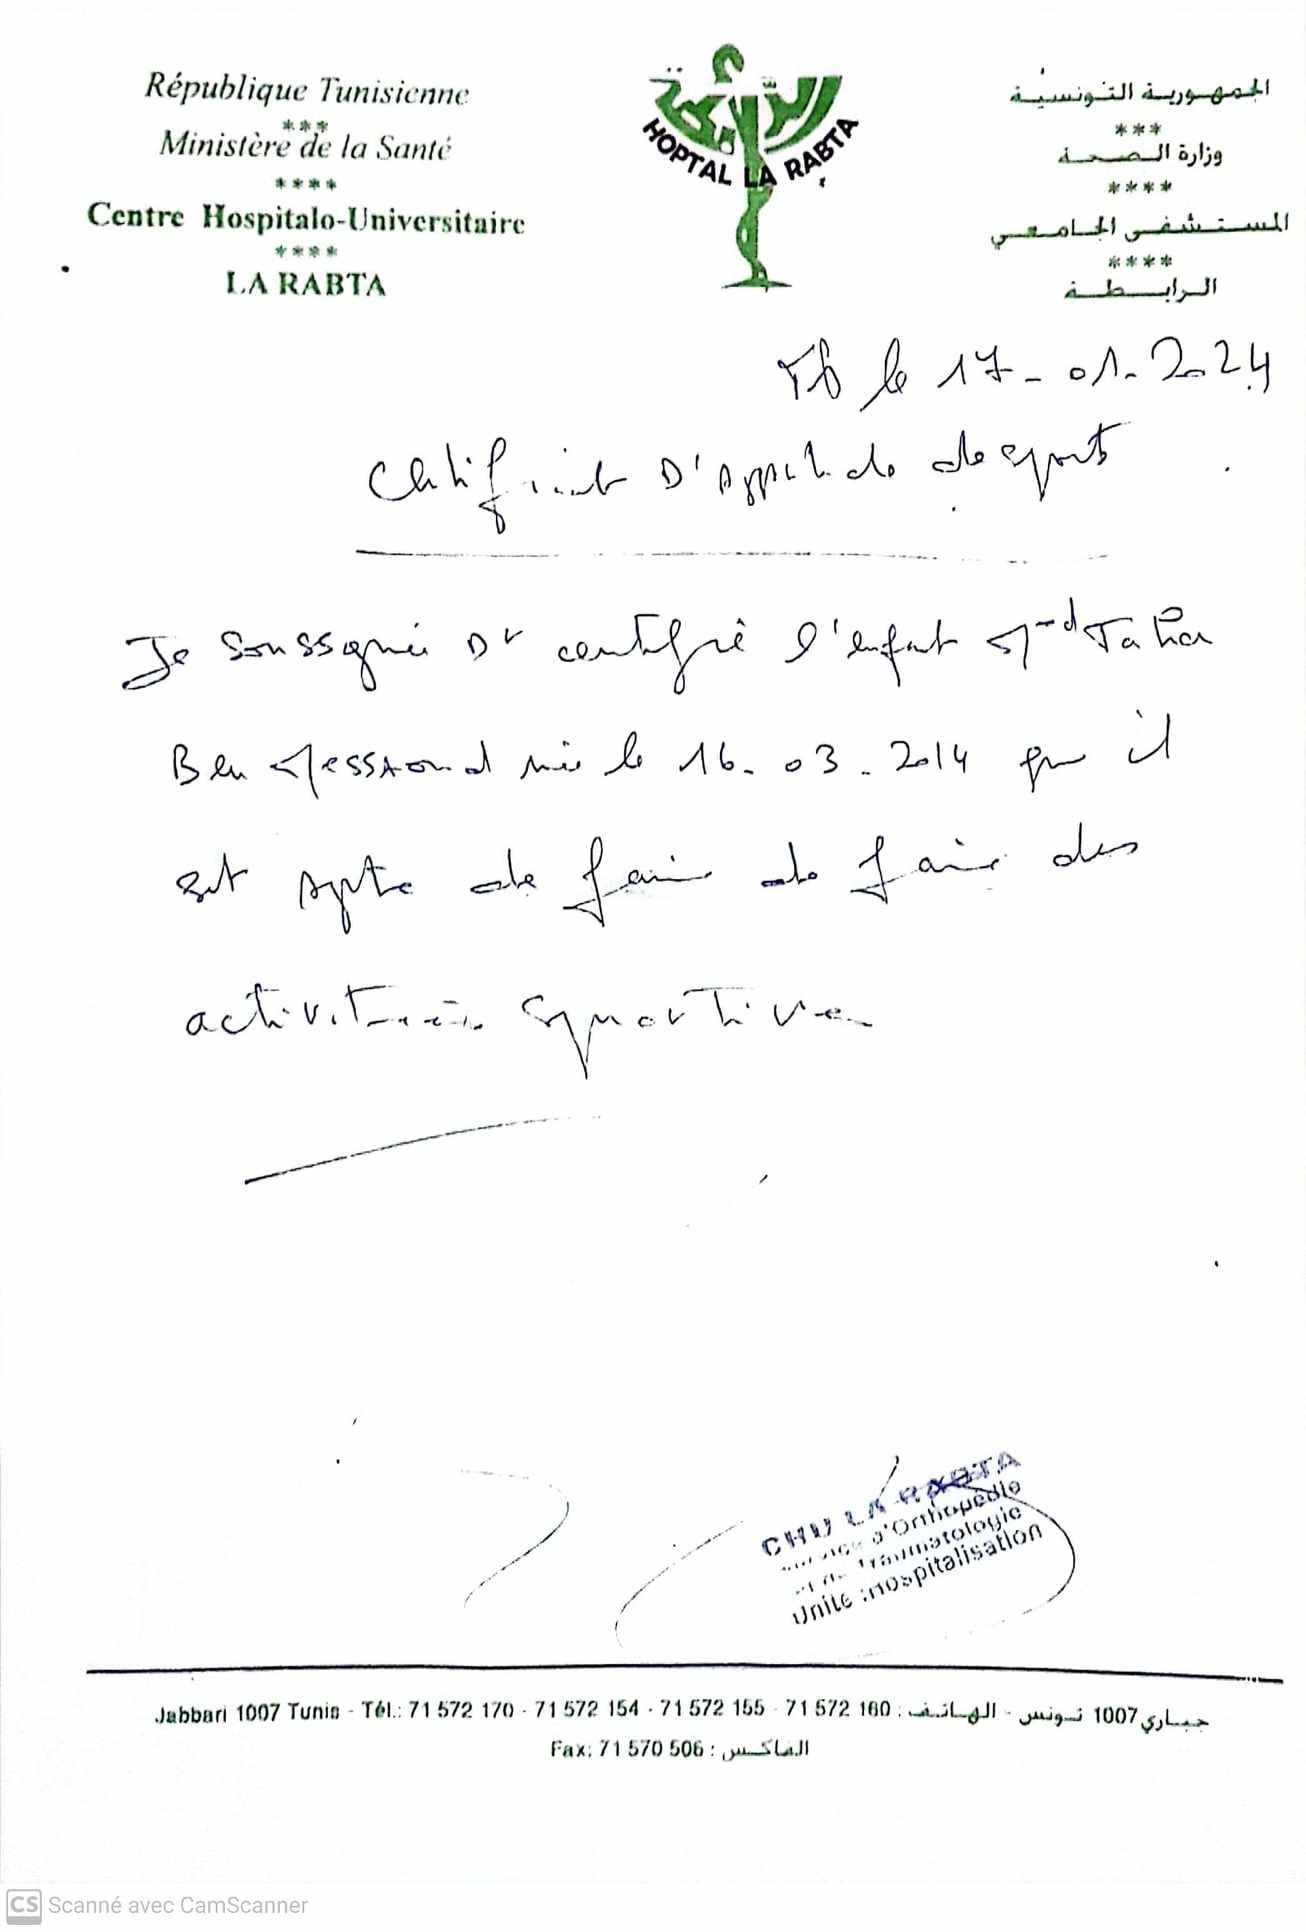 République Tunisienne
***
Ministère de la Santé
****
Centre Hospitalo-Universitaire
****
LA RABTA
الرابطة
HOPTAL LA RABTA
الجمهورية التونسية
***
وزارة الصحة
****
المستشفى الجامعي
****
الرابطة
le 17-01-2024
Certificat D'Aptitude de sport
Je soussigné Dr certifié l'enfant Med Taha
Ben Messaoud née le 16-03-2014 que il
est apte de faire de faire des
activités sportives
CHU LA RABTA
Service d'Orthopédie
et de Traumatologie
Unité :Hospitalisation
Jabbari 1007 Tunis - Tél.: 71 572 170 - 71 572 154 - 71 572 155 - 71 572 160 : جباري 1007 تونس - الهاتف
Fax: 71 570 506 : الفاكس
CS Scanné avec CamScanner